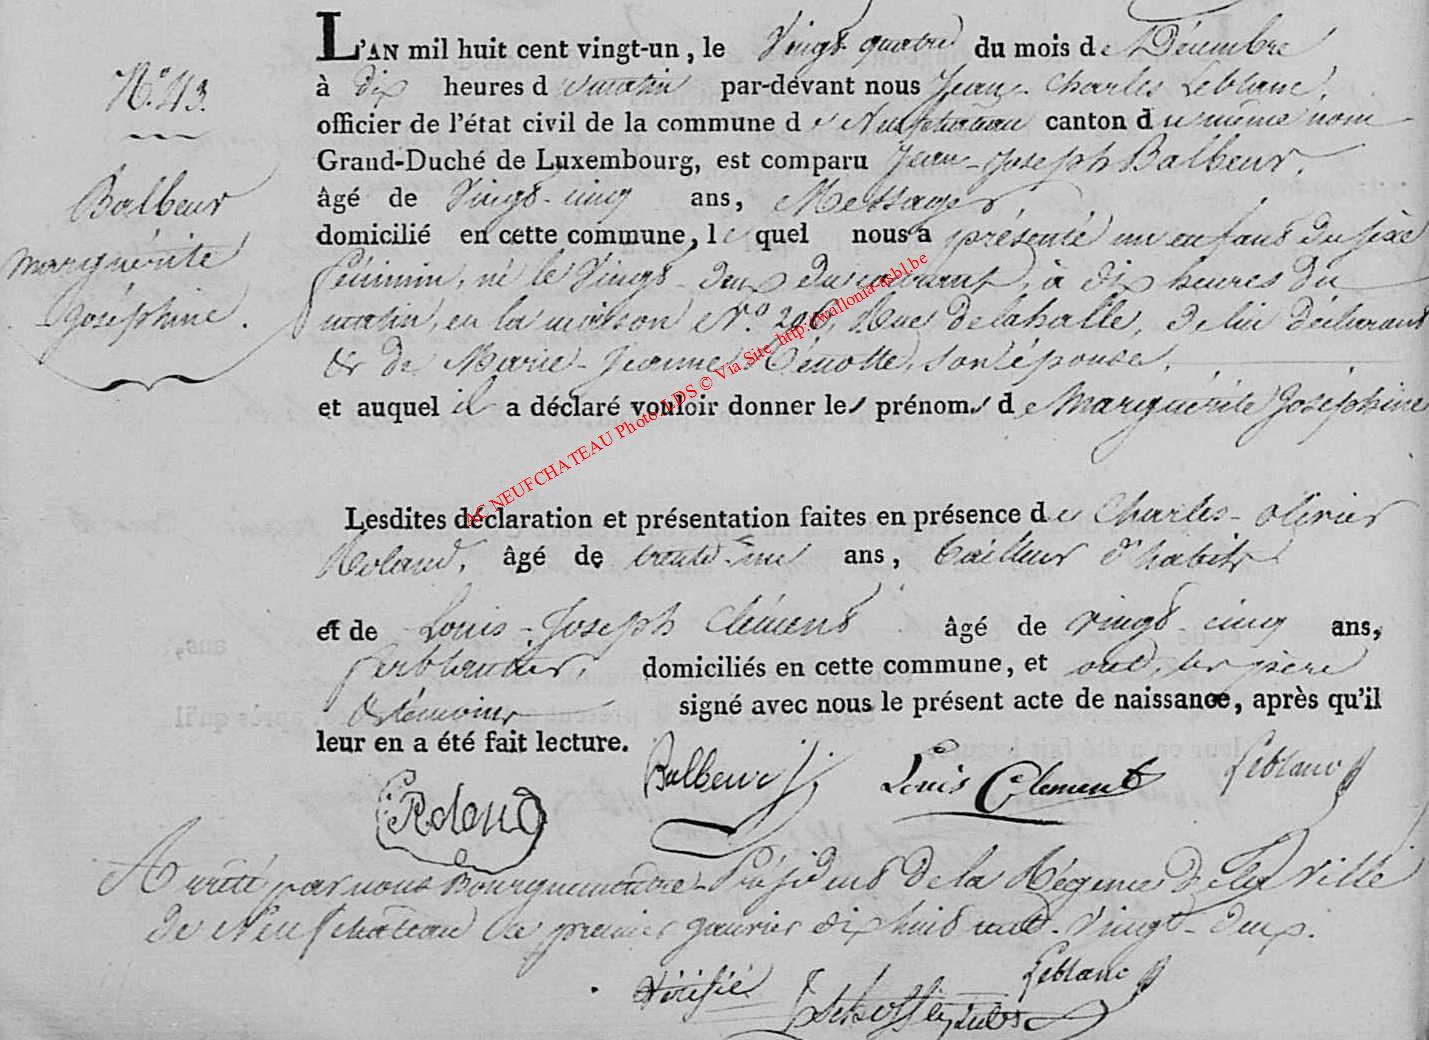 L'AN mil huit cent vingt-un, le Vingt quatre du mois de Décembre
N.° 43.
à dix heures du matin par-devant nous Jean-Charles Leblanc,
officier de l'état civil de la commune de Neufchateau canton du même nom
Grand-Duché de Luxembourg, est comparu Jean-Joseph Balbeur,
âgé de Vingt-cinq ans, Messager,
Balbeur
Marguérite
Joséphine.
domicilié en cette commune, lequel nous a présenté un enfant du sexe
féminin, né le Vingt-deux du courant, à dix heures du
matin, en la maison N.° 206, Rue de la halle, de lui déclarant
& de Marie-Jeanne Renotte, son épouse.
et auquel il a déclaré vouloir donner les prénoms de Marguérite Joséphine
AC NEUFCHATEAU Photo LDS © Via Site http://wallonia-asbl.be
Lesdites déclaration et présentation faites en présence de Charles-Olivier
Roland, âgé de trente-un ans, tailleur d'habits
et de Louis-Joseph Clément âgé de vingt-cinq ans,
ferblantier, domiciliés en cette commune, et ont, les père
& témoins signé avec nous le présent acte de naissance, après qu'il
leur en a été fait lecture.
Roland Balbeur J. Louis Clement Leblanc
Arrêté par nous Bourguemaitre-Président de la Régence de la Ville
de Neufchateau ce premier Janvier dix huit cent-Vingt-deux.
Leblanc
Vérifié